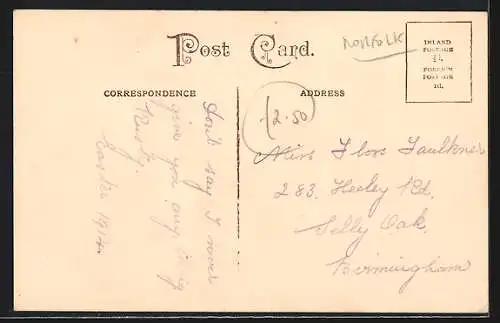 Post Card.
NORFOLK
INLAND
POSTAGE
½d.
FOREIGN
POSTAGE
1d.
CORRESPONDENCE
ADDRESS
2.50
Don't say I never
give you anything
Rusty.
Easter 1914.
Miss Flors Faulkner
283. Heeley Rd.
Selly Oak.
Birmingham